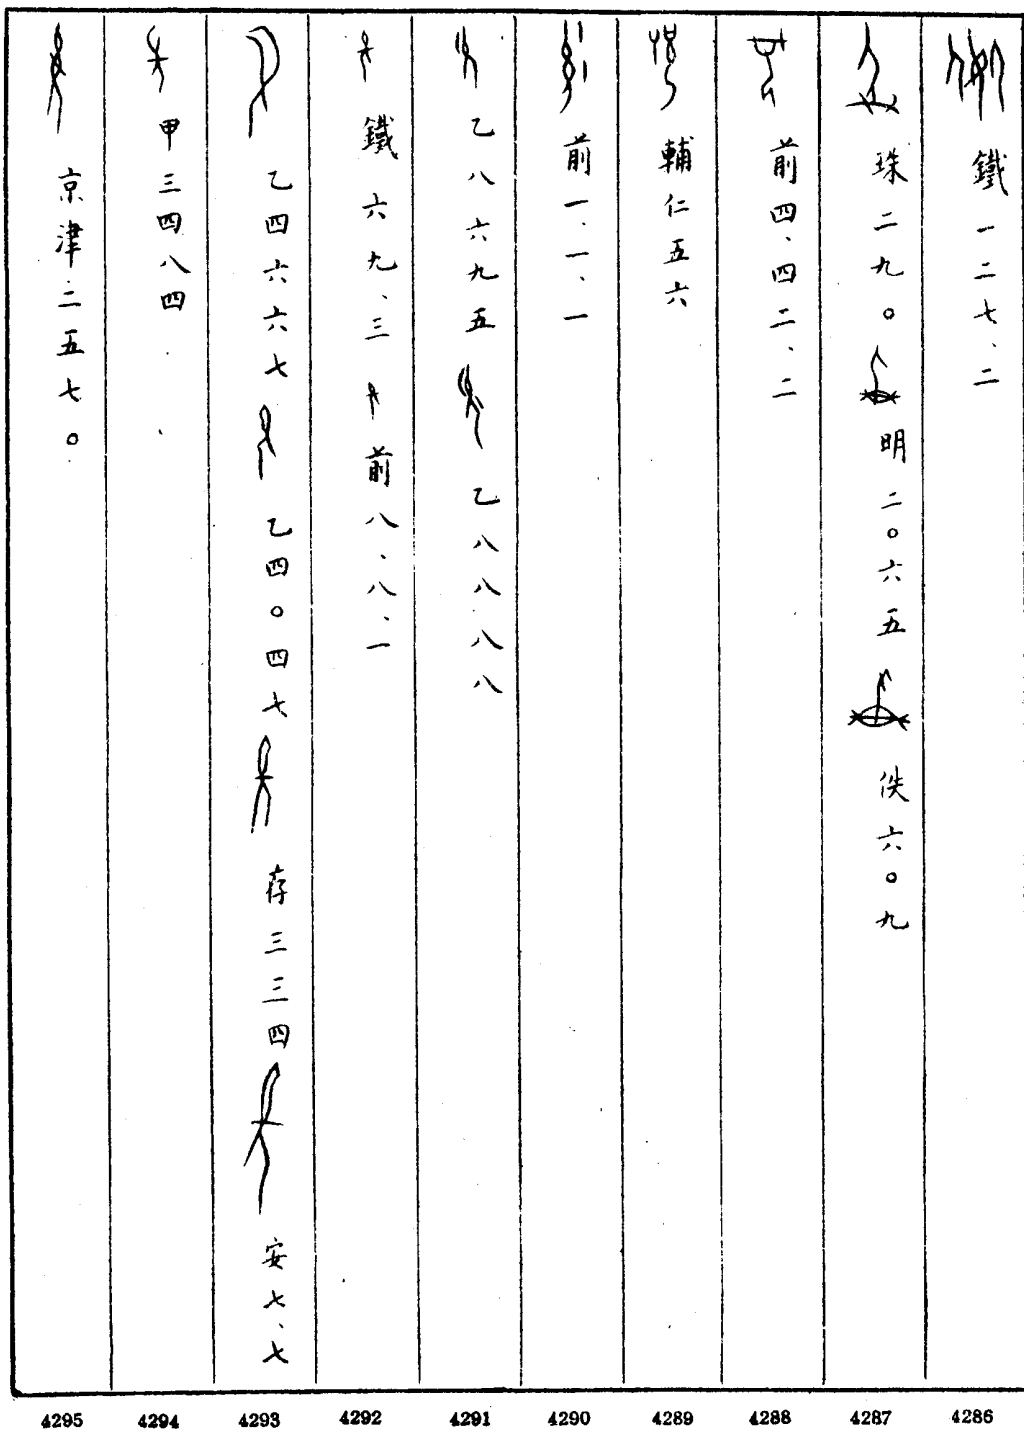 鐵一二七、二
珠二九〇 明二〇六五 佚六〇九
前四、四二、二
輔仁五六
前一、一、一
乙八六九五 乙八八八八
鐵六九、三 前八、八、一
乙四六六七 乙四〇四七 存三三四 安七、七
甲三四八四
京津二五七〇
4295 4294 4293 4292 4291 4290 4289 4288 4287 4286